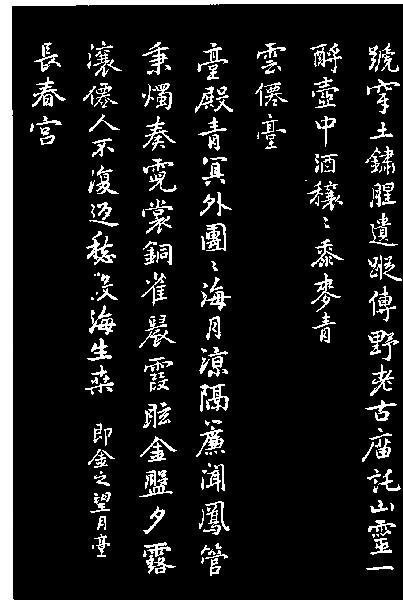 號穿土鏽腥遺蹤傳野老古廟託山靈一
酹壺中酒穰〻黍麥青
雲僊臺
臺殿青冥外團〻海月涼隔簾聞鳳管
秉燭奏霓裳銅雀晨霞眩金盤夕露
瀼僊人不復返愁海生桑 即金之望月臺
長春宮